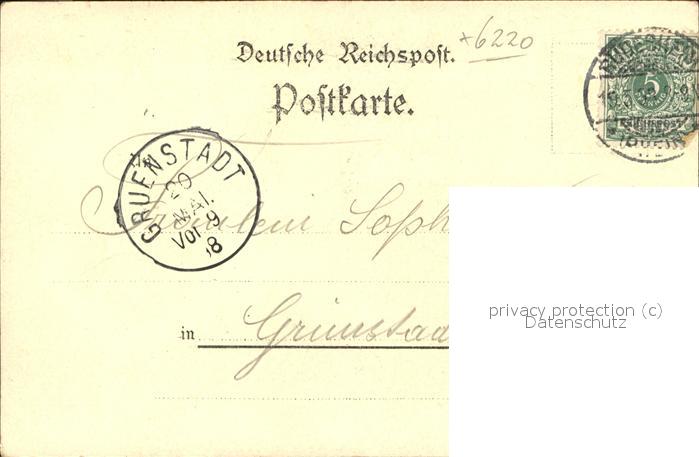 *6220
Deutsche Reichspost.
Postkarte.
5
REICHSPOST
GRUENSTADT
20
MAI.
Vor 9
Fräulein Soph
in Grünstad
privacy protection (c)
Datenschutz